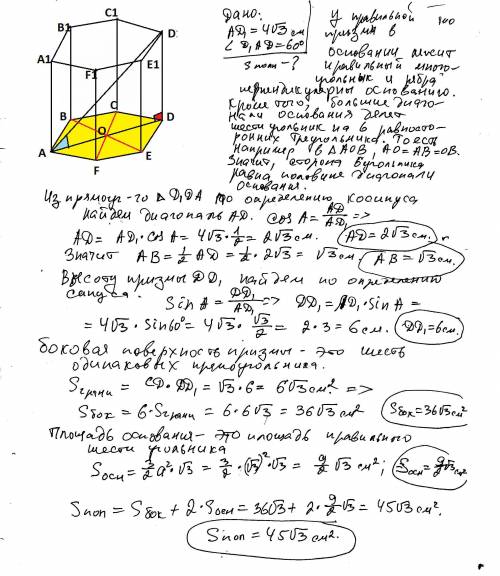 C1
B1
D1
A1
E1
F1
B
C
D
O
A
E
F
Дано:
AD₁ = 4√3 см
∠D₁AD = 60°
Sполн - ?
У правильной
призмы в
основании лежит
правильный много-
угольник и ребра
перпендикулярны основанию.
Кроме того, большие диаго-
нали основания делят
шестиугольник на 6 равносто-
ронних треугольника. То есть
Например в ΔAOB, AO=AB=OB.
Значит, сторона 6угольника
равна половине диагонали
основания.
Из прямоуг-го ΔD₁DA по определению косинуса
найдем диагональ AD. cos A = AD/AD₁ =>
AD = AD₁·cos A = 4√3·1/2 = 2√3 см. AD = 2√3 см.
Значит AB = 1/2 AD = 1/2·2√3 = √3 см. AB = √3 см.
Высоту призмы DD₁ найдем по определению
синуса.
Sin A = DD₁/AD₁ => DD₁ = AD₁·sin A =
= 4√3·sin60° = 4√3·√3/2 = 2·3 = 6 см. DD₁ = 6 см.
боковая поверхность призмы - это шесть
одинаковых прямоугольника.
Sграни = CD·DD₁ = √3·6 = 6√3 см² =>
Sбок = 6·Sграни = 6·6√3 = 36√3 см² Sбок = 36√3 см²
Площадь основания - это площадь правильного
шестиугольника
Sосн = 3/2 a²·√3 = 3/2·(√3)²·√3 = 9/2 √3 см²; Sосн = 9/2 √3 см²
Sпол = Sбок + 2·Sосн = 36√3 + 2·9/2 √3 = 45√3 см².
Sпол = 45√3 см².